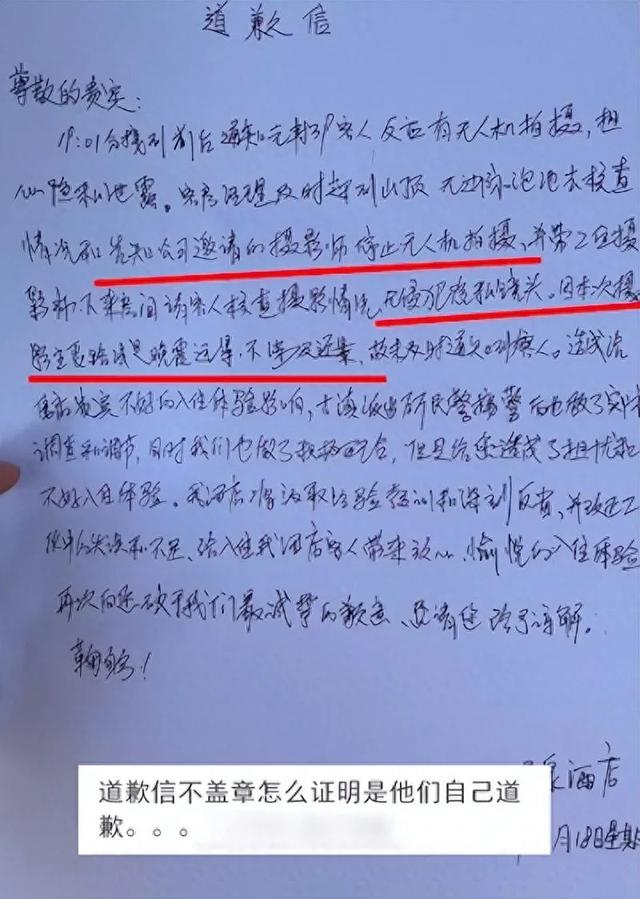 道歉信
尊敬的贵宾:
19:01分接到前台通知无料79客人反应有无人机拍摄,担
心隐私泄露。客房经理及时赶到山顶无边泳池去核查
情况和告知公司邀请的摄影师停止无人机拍摄,并带2位摄
影师下来房间请客人核查摄影情况,无侵犯隐私镜头。因本次摄
影主要路线是晚霞远景,不涉及近景,故未及时通知到客人。造成给
贵宾不好的入住体验影响,古滇派出所民警接警后也做了实际
调查和调节,同时我们也做了积极配合,但是给您造成了担忧和
不好入住体验。我酒店将汲取经验教训和深刻反省,并改进工
作中的失误和不足、给入住我酒店客人带来放心、愉悦的入住体验
再次向您致于我们最诚挚的歉意、还请您给予谅解。
鞠躬!
泉酒店
月18日星期
道歉信不盖章怎么证明是他们自己道
歉。。。